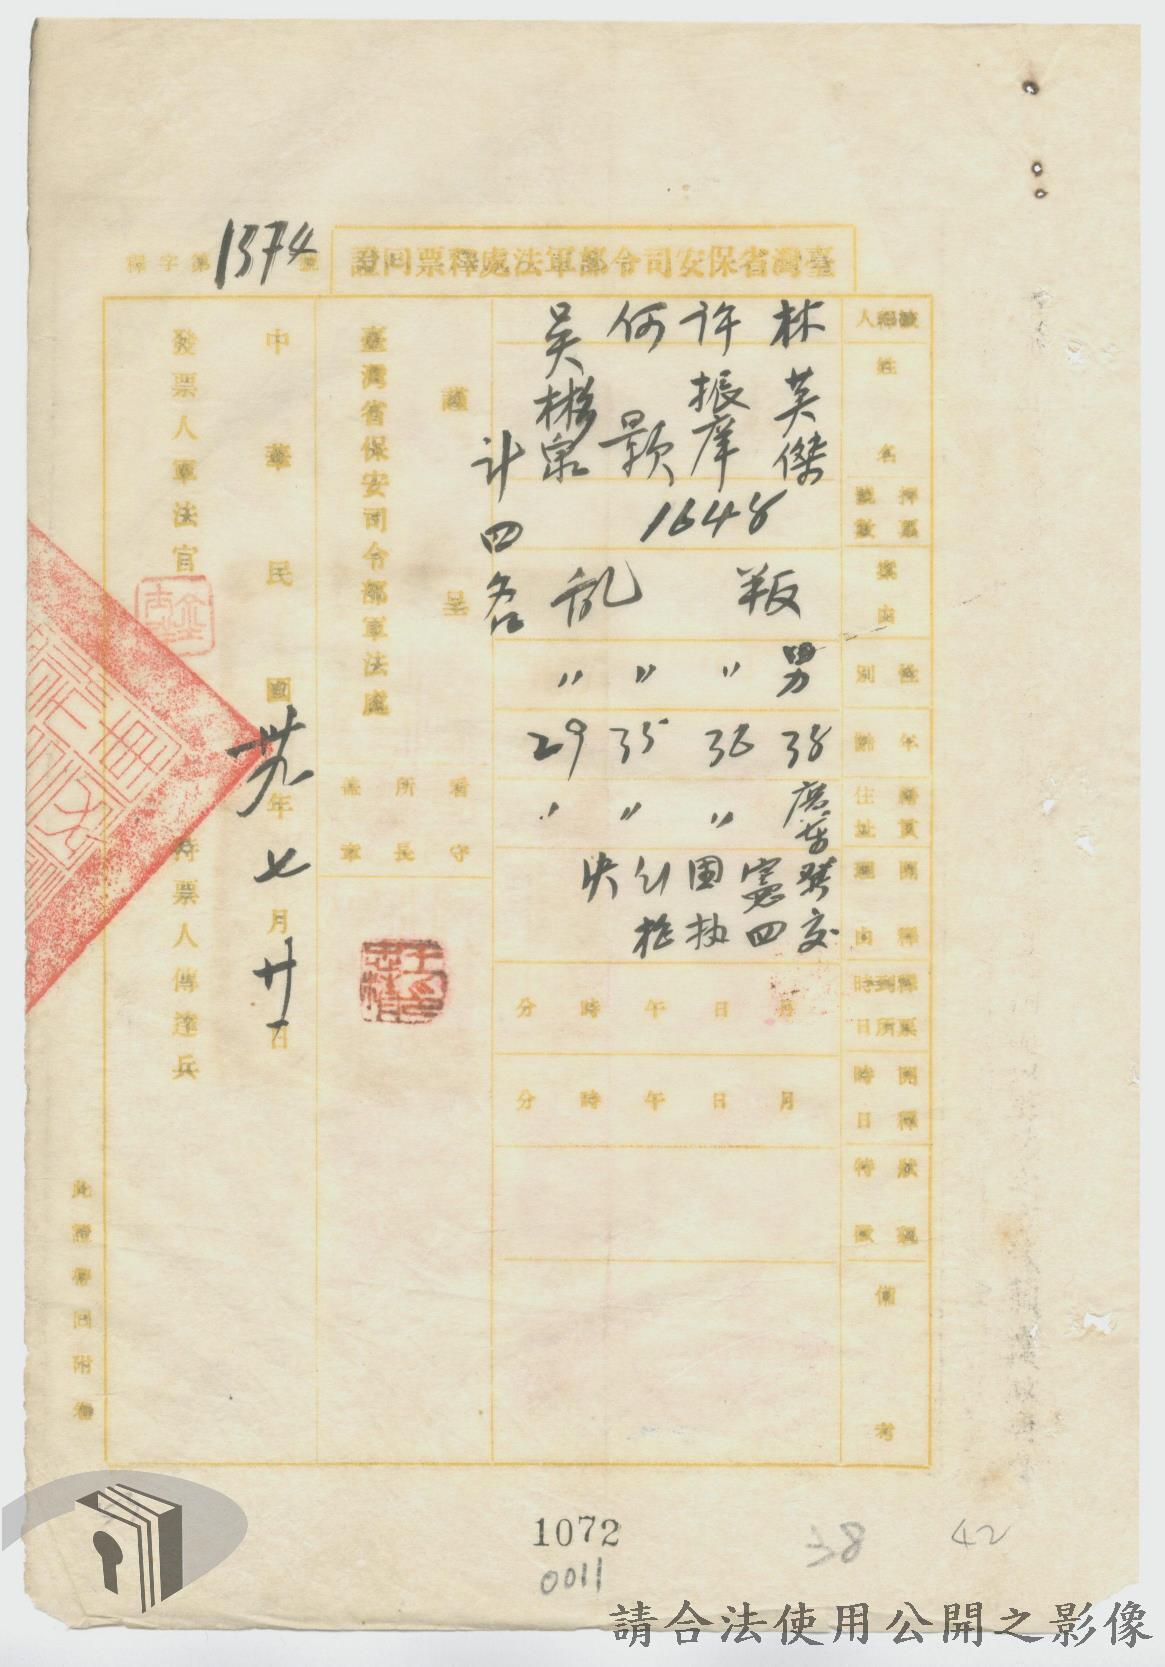 臺灣省保安司令部軍法處釋票回證
釋字第1374號
被釋人
姓名
林英傑
許振庠
何顯
吳彬泉
計四名
押票號數
1648
案由
叛亂
性別
男
〃
〃
〃
年齡
38
36
35
29
籍貫住址
廣東
〃
〃
〃
開釋理由
憲四團執行
釋票到所時日
月日午時分
開釋時日
月日午時分
狀貌特徵
備考
謹呈
臺灣省保安司令部軍法處
看守所所長蓋章
中華民國卅九年七月廿一日
發票人軍法官
持票人傳達兵
此證擲回附卷
1072
0011
38
42
請合法使用公開之影像